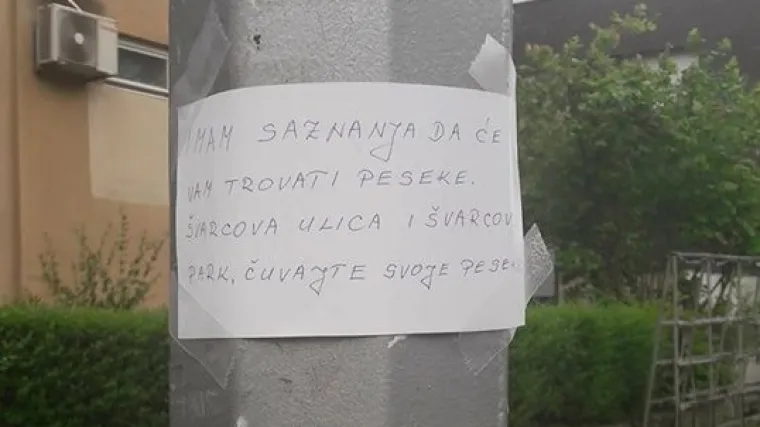 IMAM SAZNANJA DA ĆE
VAM TROVATI PESEKE.
ŠVARCOVA ULICA I ŠVARCOV
PARK, ČUVAJTE SVOJE PESE